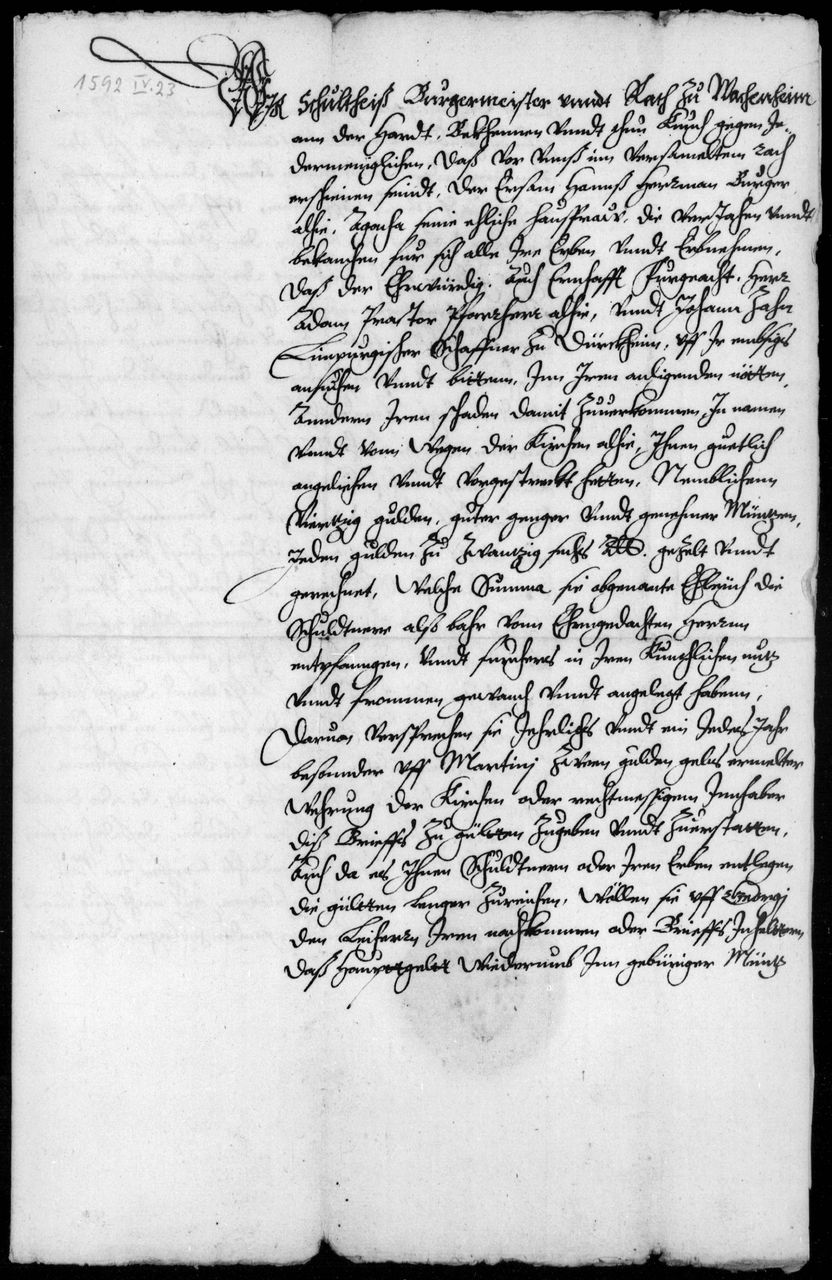 1592 IV. 23
Wir Schultheiß Burgermeister unndt Rath zu Wachenheim
ann der Hardt, Bekhennen unndt thun Kundt gegen Je-
dermeniglichen, daß vor unnß im versameltem rath
erschienen seindt, der Ersam Hannß Herzman Burger
alhie, Agatha seine ehliche haußfrauw, die verJahen unndt
bekanthen für sich alle Ire Erben unndt Erbnehmen,
Daß der Ehrwürdig. Auch Ernhafft Furgeacht. Herr
Adam Praetor Pfarrherr alhie, unndt Johann Zahn
Limpurgischer Schaffner zu Dürckheim, uff Ir embsigs
ansuchen unndt bittenn, Inn Iren anligenden nötten,
Anndern Iren schaden damit zuuerkommen, In namen
unndt vonn wegen der Kirchen alhie, Ihnen guetlich
angelichen unndt vorgestreckt hetten, Nemblichenn
Viertzig gulden, guter genger unndt genehmer Müntzen,
Jeden gulden zu zwantzig sechs alb. gezelt unndt
gerechnet, Welche Summa sie obgenante Eheleuth die
Schuldtnere alß bahr vonn Ehrngedachten Herrnn
entpfanngen, unndt fürthers in Iren Kunthlichen nutz
unndt frommen gewandt unndt angelegt habenn,
Daruon versprechen sie Jehrlichs unndt ein Jedes Jahr
besonder uff Martinj zween gulden gelts ermelter
Wehrung der Kirchen oder rechtmessigem Innhaber
diß Brieffs zu gültten zugeben unndt zuerstatten,
Auch da es Ihnen Schuldtnern oder Iren Erben entlegen
die gültten lenger zureichen, Wöllen sie uff Georgj
den Leiherrn Iren nachkommen oder Brieffs Inheltern
daß Hauptgeltt Wiederumb Inn gebüriger Müntz